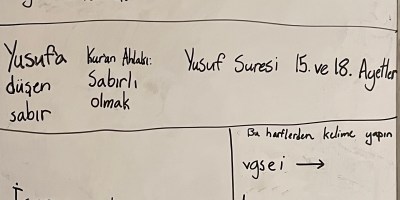 Yusuf'a
düşen
sabır
Kur'an Ahlakı:
Sabırlı
olmak
Yusuf Suresi 15. ve 18. Ayetler
Bu harflerden kelime yapın
vgsei →